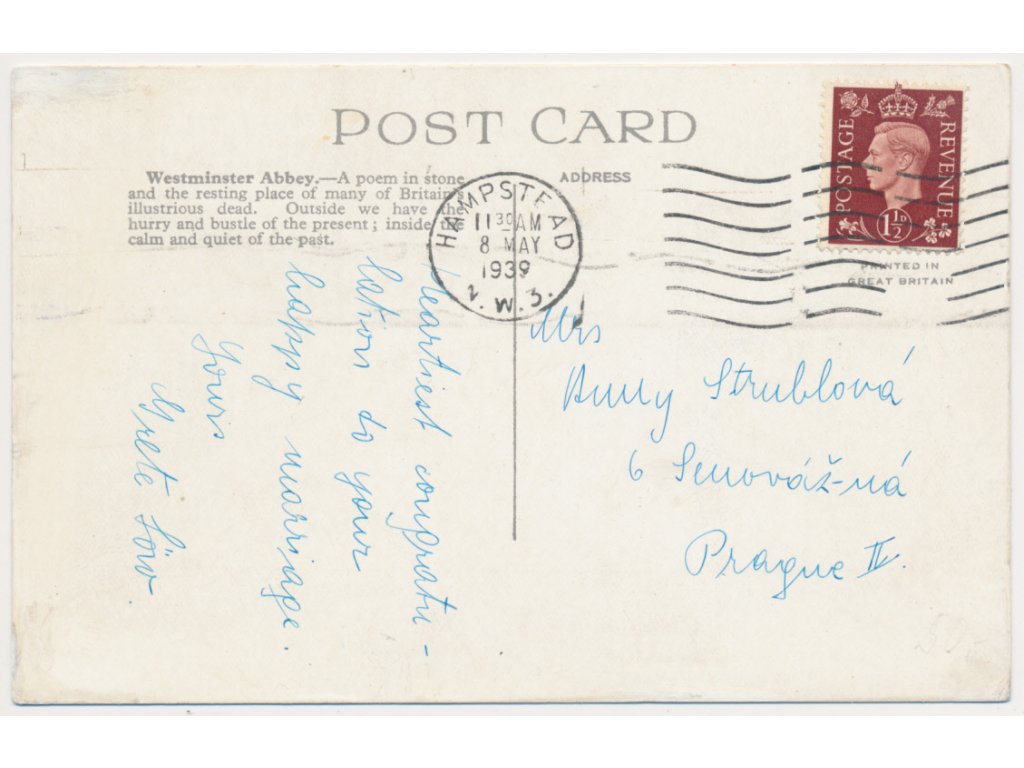 POST CARD
Westminster Abbey.—A poem in stone
and the resting place of many of Britain's
illustrious dead. Outside we have the
hurry and bustle of the present; inside the
calm and quiet of the past.
ADDRESS
HAMPSTEAD
11 30 AM
8 MAY
1939
N.W.3.
POSTAGE
REVENUE
1½D
PRINTED IN
GREAT BRITAIN
Heartiest congratu-
lation to your
happy marriage.
Yours
Grete Löw.
Mrs
Anny Strublová
6 Senovážná
Prague II.